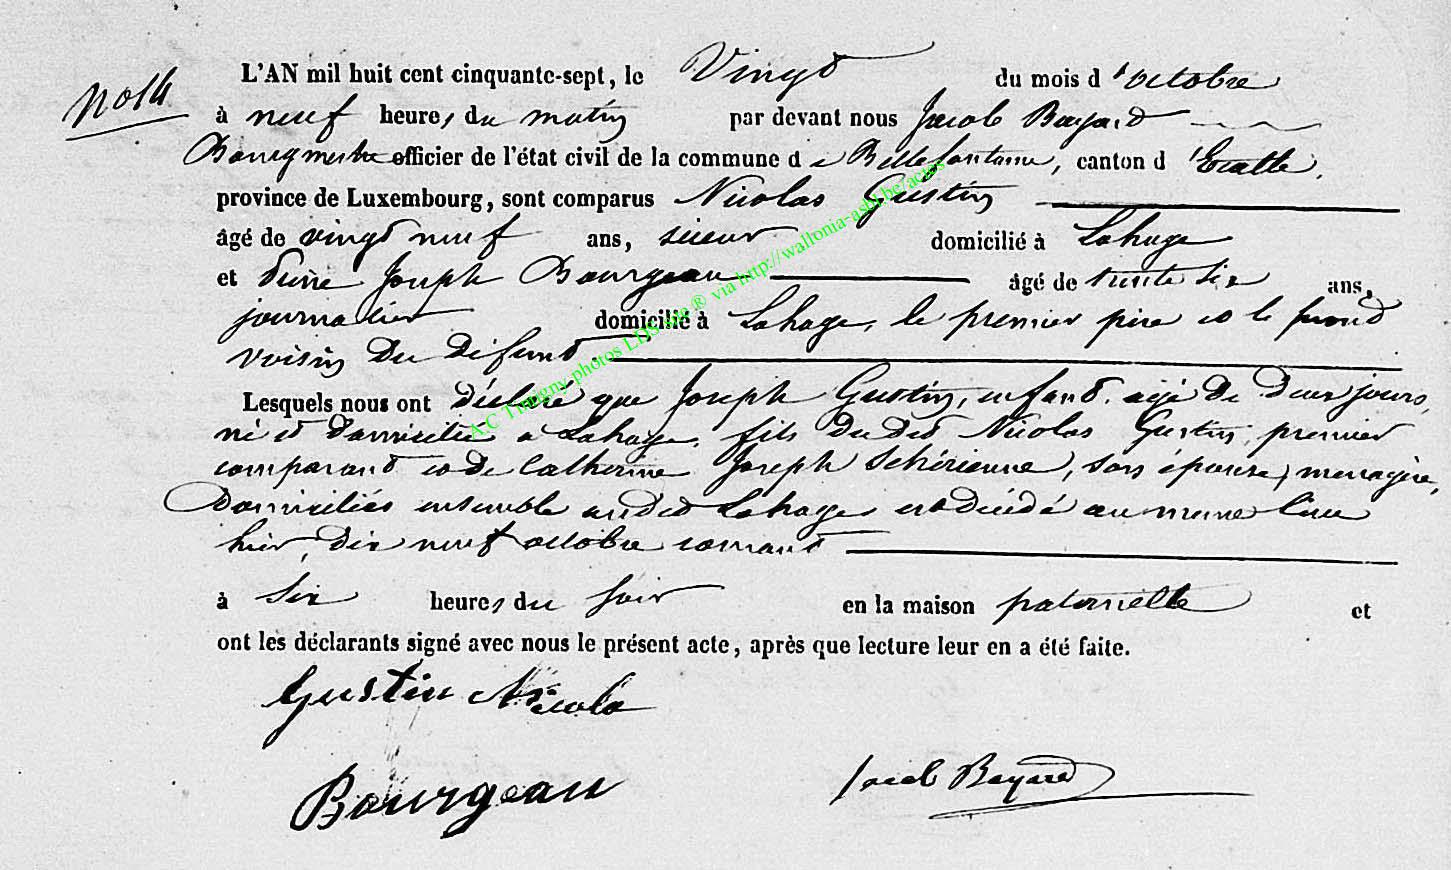 L'AN mil huit cent cinquante-sept, le Vingt du mois d'octobre
à neuf heures du matin par devant nous Jacob Bayard
Bourgmestre officier de l'état civil de la commune de Bellefontaine, canton d'Etalle,
province de Luxembourg, sont comparus Nicolas Gustin
âgé de vingt neuf ans, scieur domicilié à Lahage
et Pierre Joseph Bourgeau âgé de trente six ans,
journalier domicilié à Lahage, le premier père et le second
voisin du défunt.
Lesquels nous ont déclaré que Joseph Gustin, enfant, agé de deux jours,
né et domicilié à Lahage, fils dudit Nicolas Gustin, premier
comparant et de Catherine Joseph, son épouse, menagère,
domiciliés ensemble audit Lahage est décédé au meme lieu
hier, dix neuf octobre courant
à six heures du soir en la maison paternelle et
ont les déclarants signé avec nous le présent acte, après que lecture leur en a été faite.
Gustin Nicola
Bourgeau Jacob Bayard
A.C Tintigny photos LDS site ® via http://wallonia-asbl.be/actes